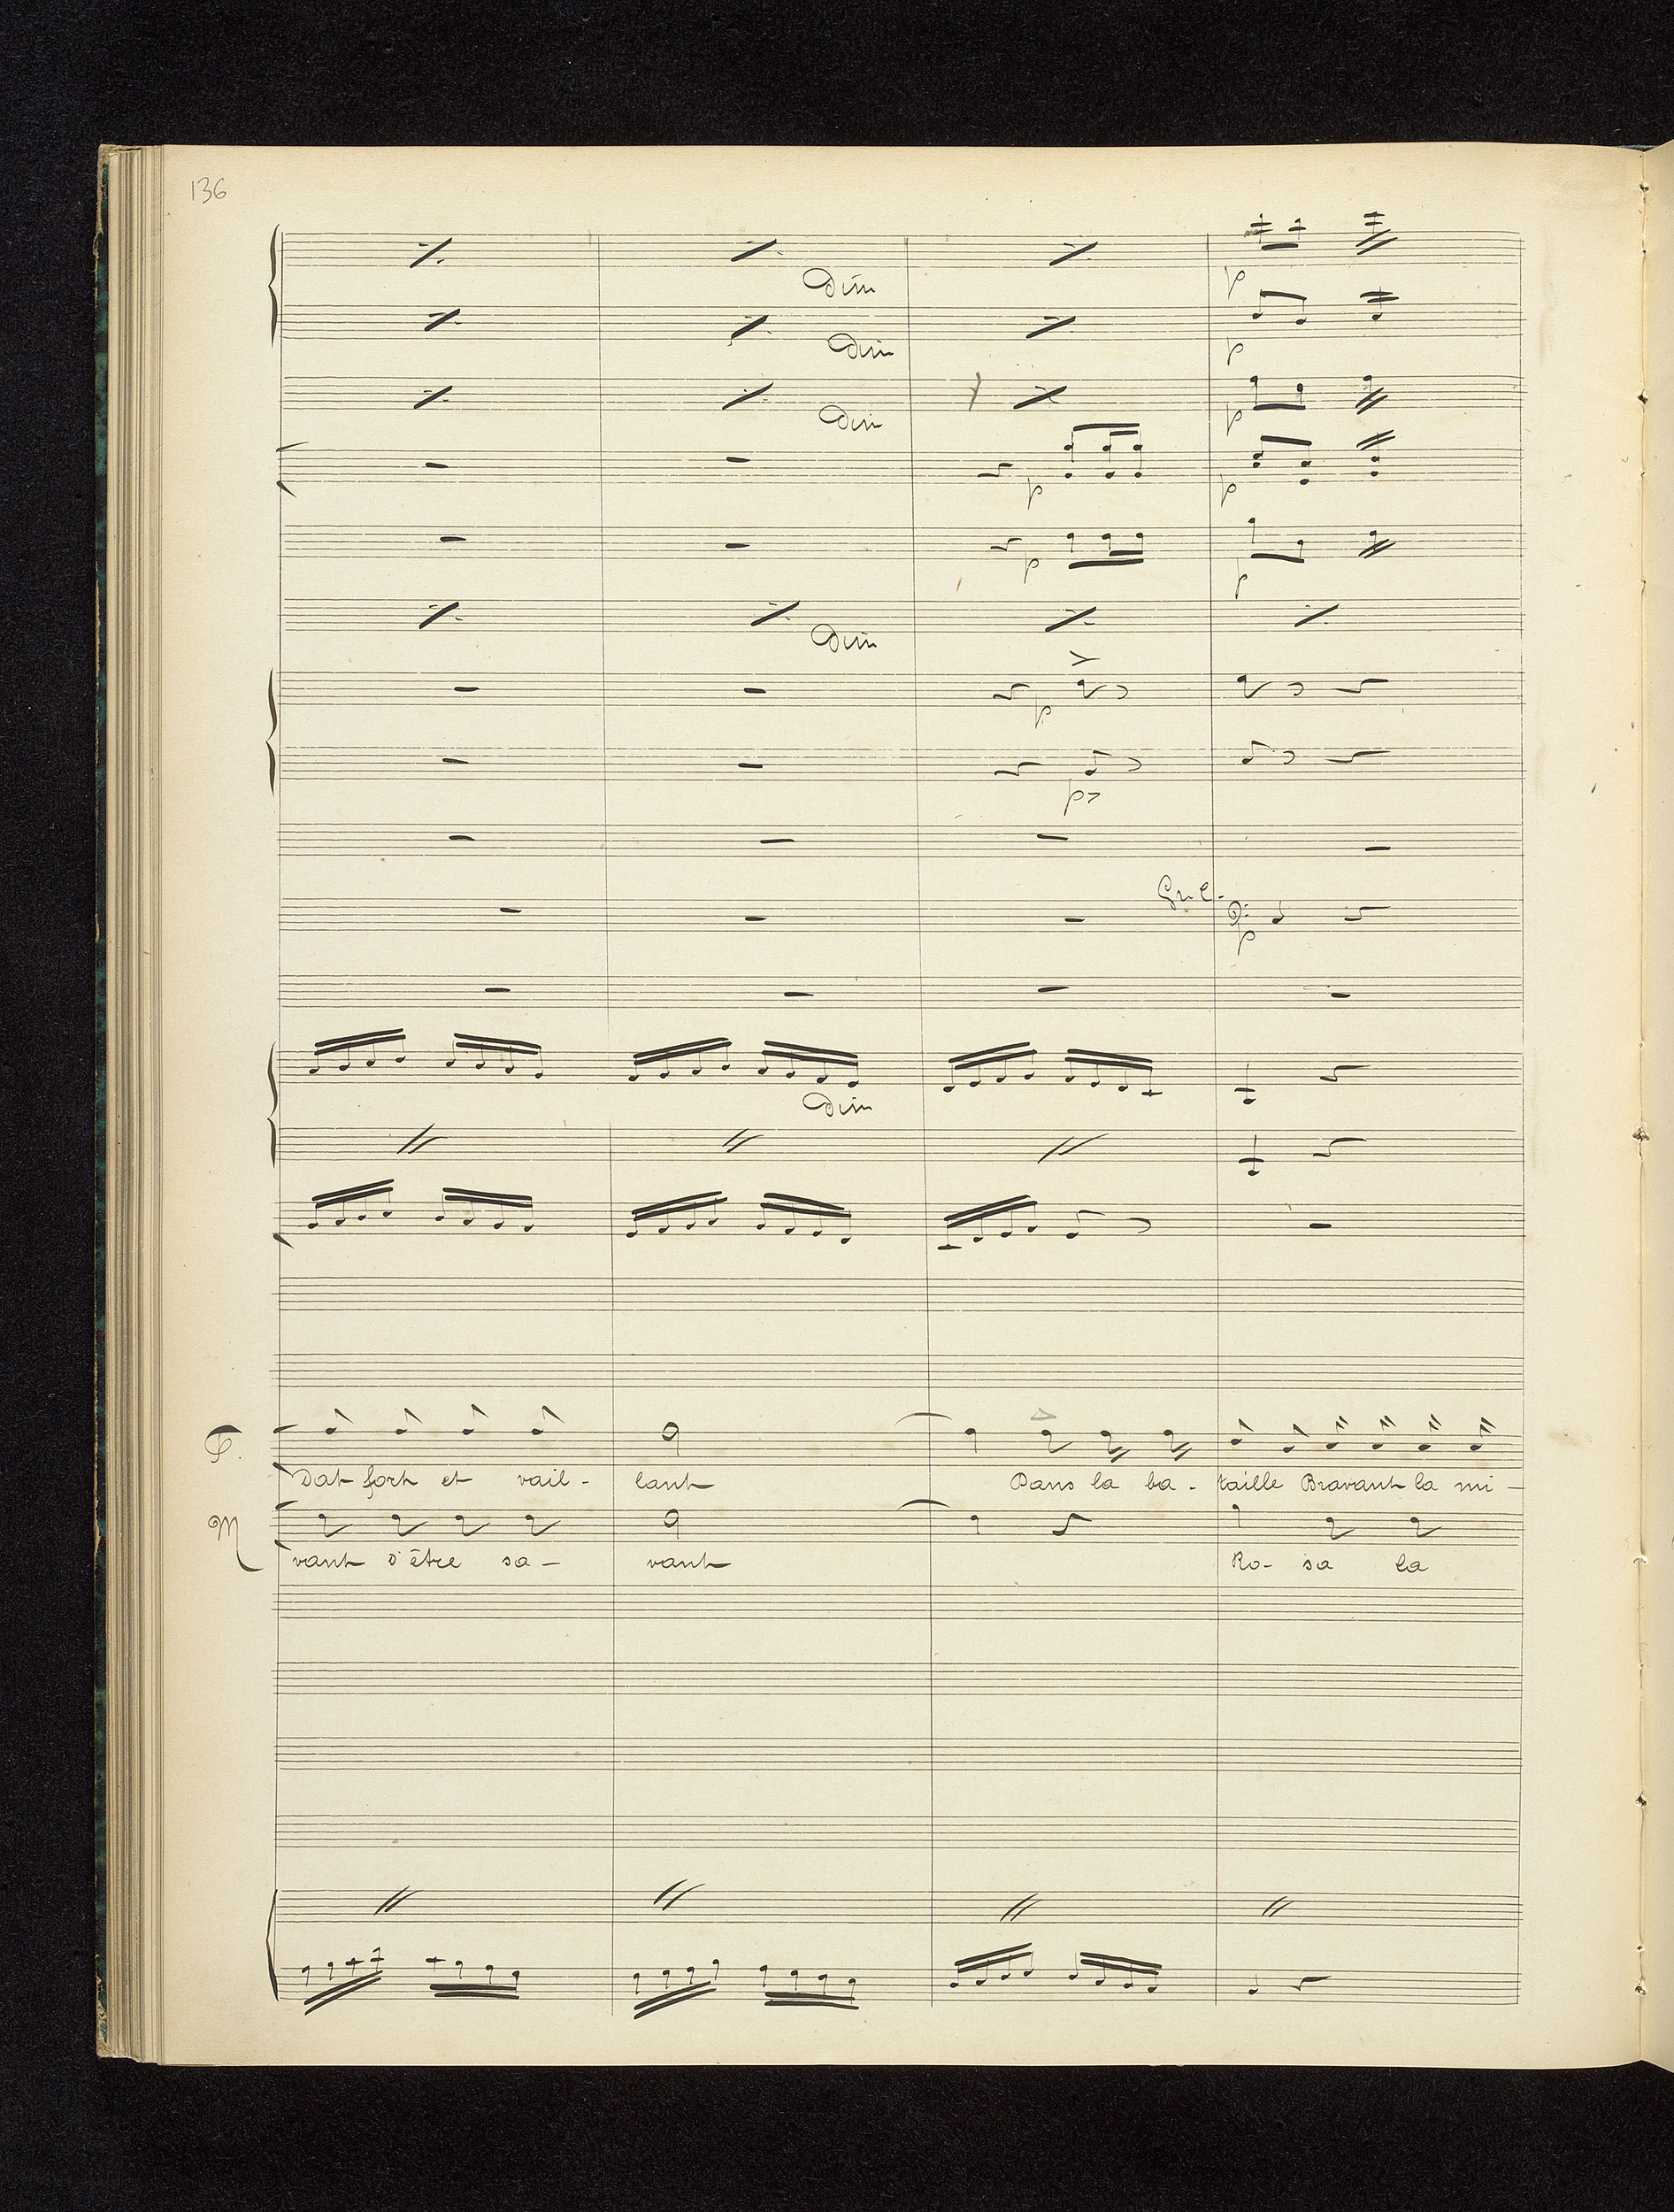 136
Dim
p
Dim
p
Dim
p
p
p
p
p
Dim
p
p
p
Dim
Dat fort et vail - lant Dans la ba - taille Bravant la mi -
M
vant d'être sa - vant Ro - sa la